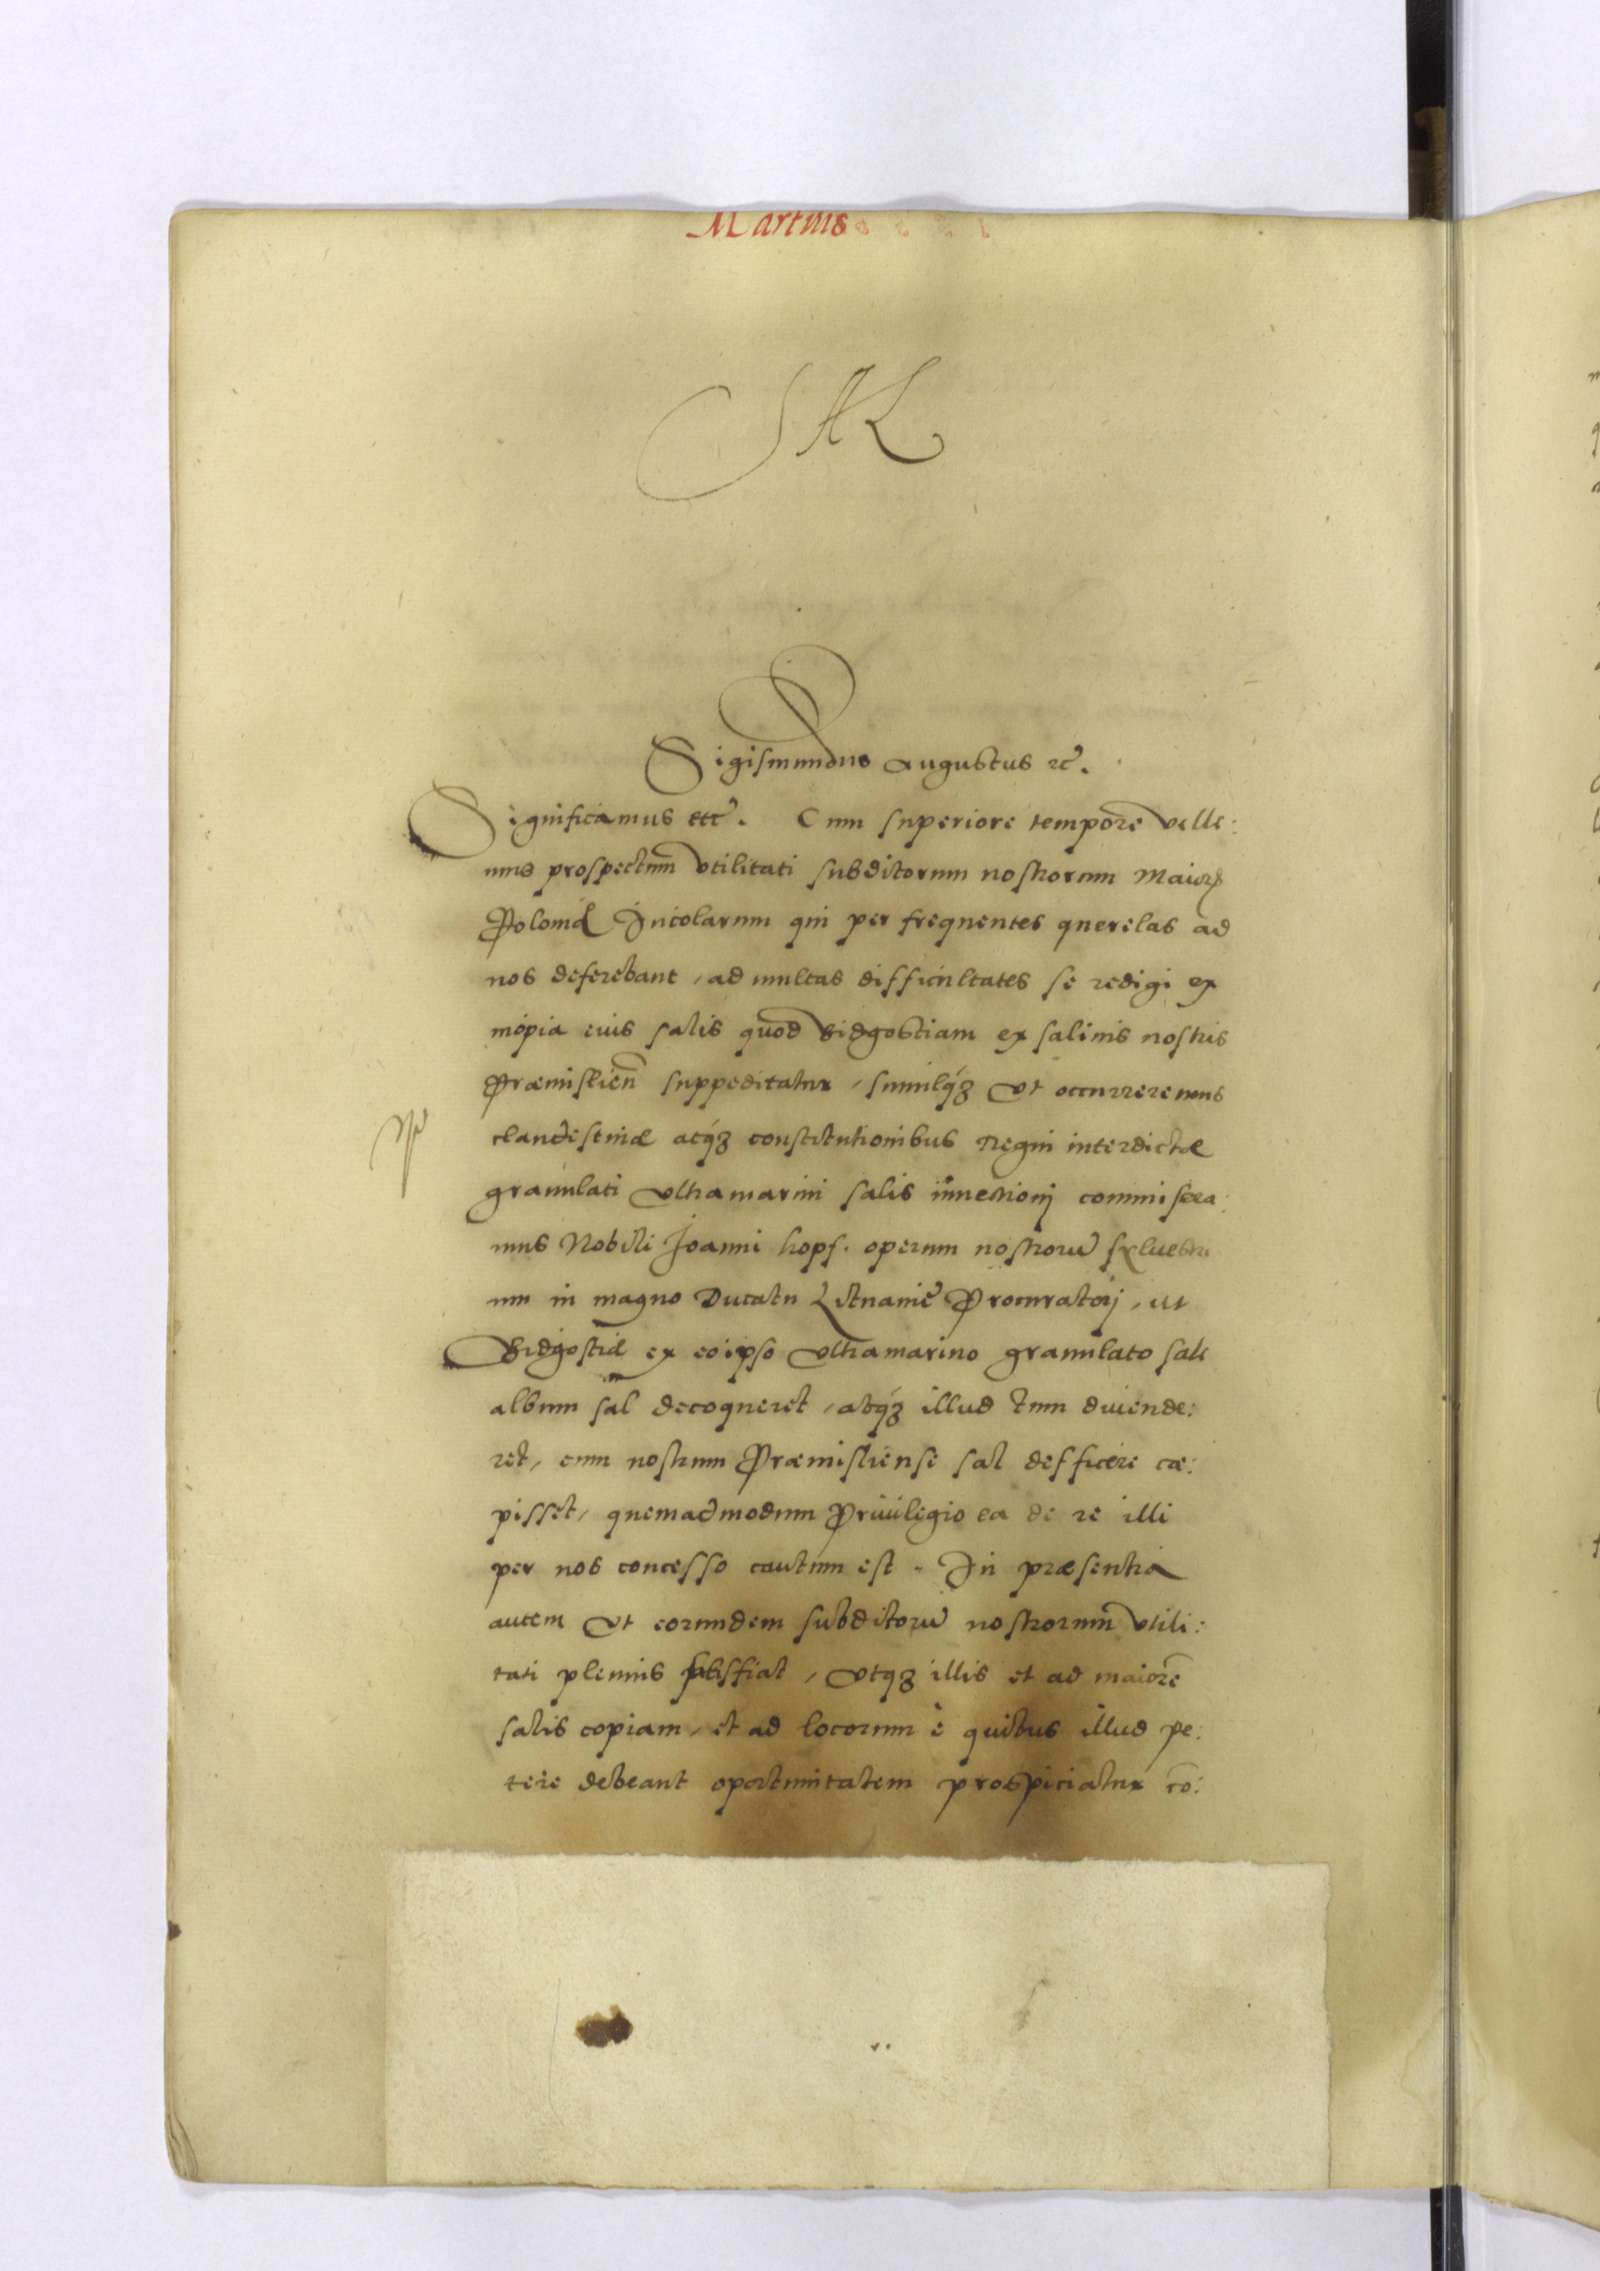 Martius
SAL
Sigismundus Augustus etc̃.
Significamus etc̃. Cum superiore tempore velle:
mus prospectum utilitati subditorum nostrorum Maioris
Poloniæ Incolarum qui per frequentes querelas ad
nos deferebant, ad multas difficultates se redigi ex
inopia eius salis quod Bidgostiam ex salinis nostris
Præmislien̄ suppeditatur, simulqꝫ Ut occurreremus
clandestinæ atqꝫ constitutionibus Regni interdictæ
granulati Ultramarini salis invectionj commisera:
mus Nobili Joanni hopf. operum nostrorū sylvestri
um in magno Ducatu Lituaniē Procuratorj, ut
Bidgostiæ ex eoipso Ultramarino granulato sale
album sal decoqueret, atqꝫ illud tum divende:
ret, cum nostrum Præmisliense sal defficere cæ:
pisset, quemadmodum Privilegio ea de re illi
per nos concesso cautum est. In præsentia
autem Ut eorundem subditorū nostrorum utili:
tati plenius satisfiat, Utqꝫ illis et ad maiorē
salis copiam, et ad locorum è quibus illud pe:
tere debeant oportunitatem prospiciatur cō: